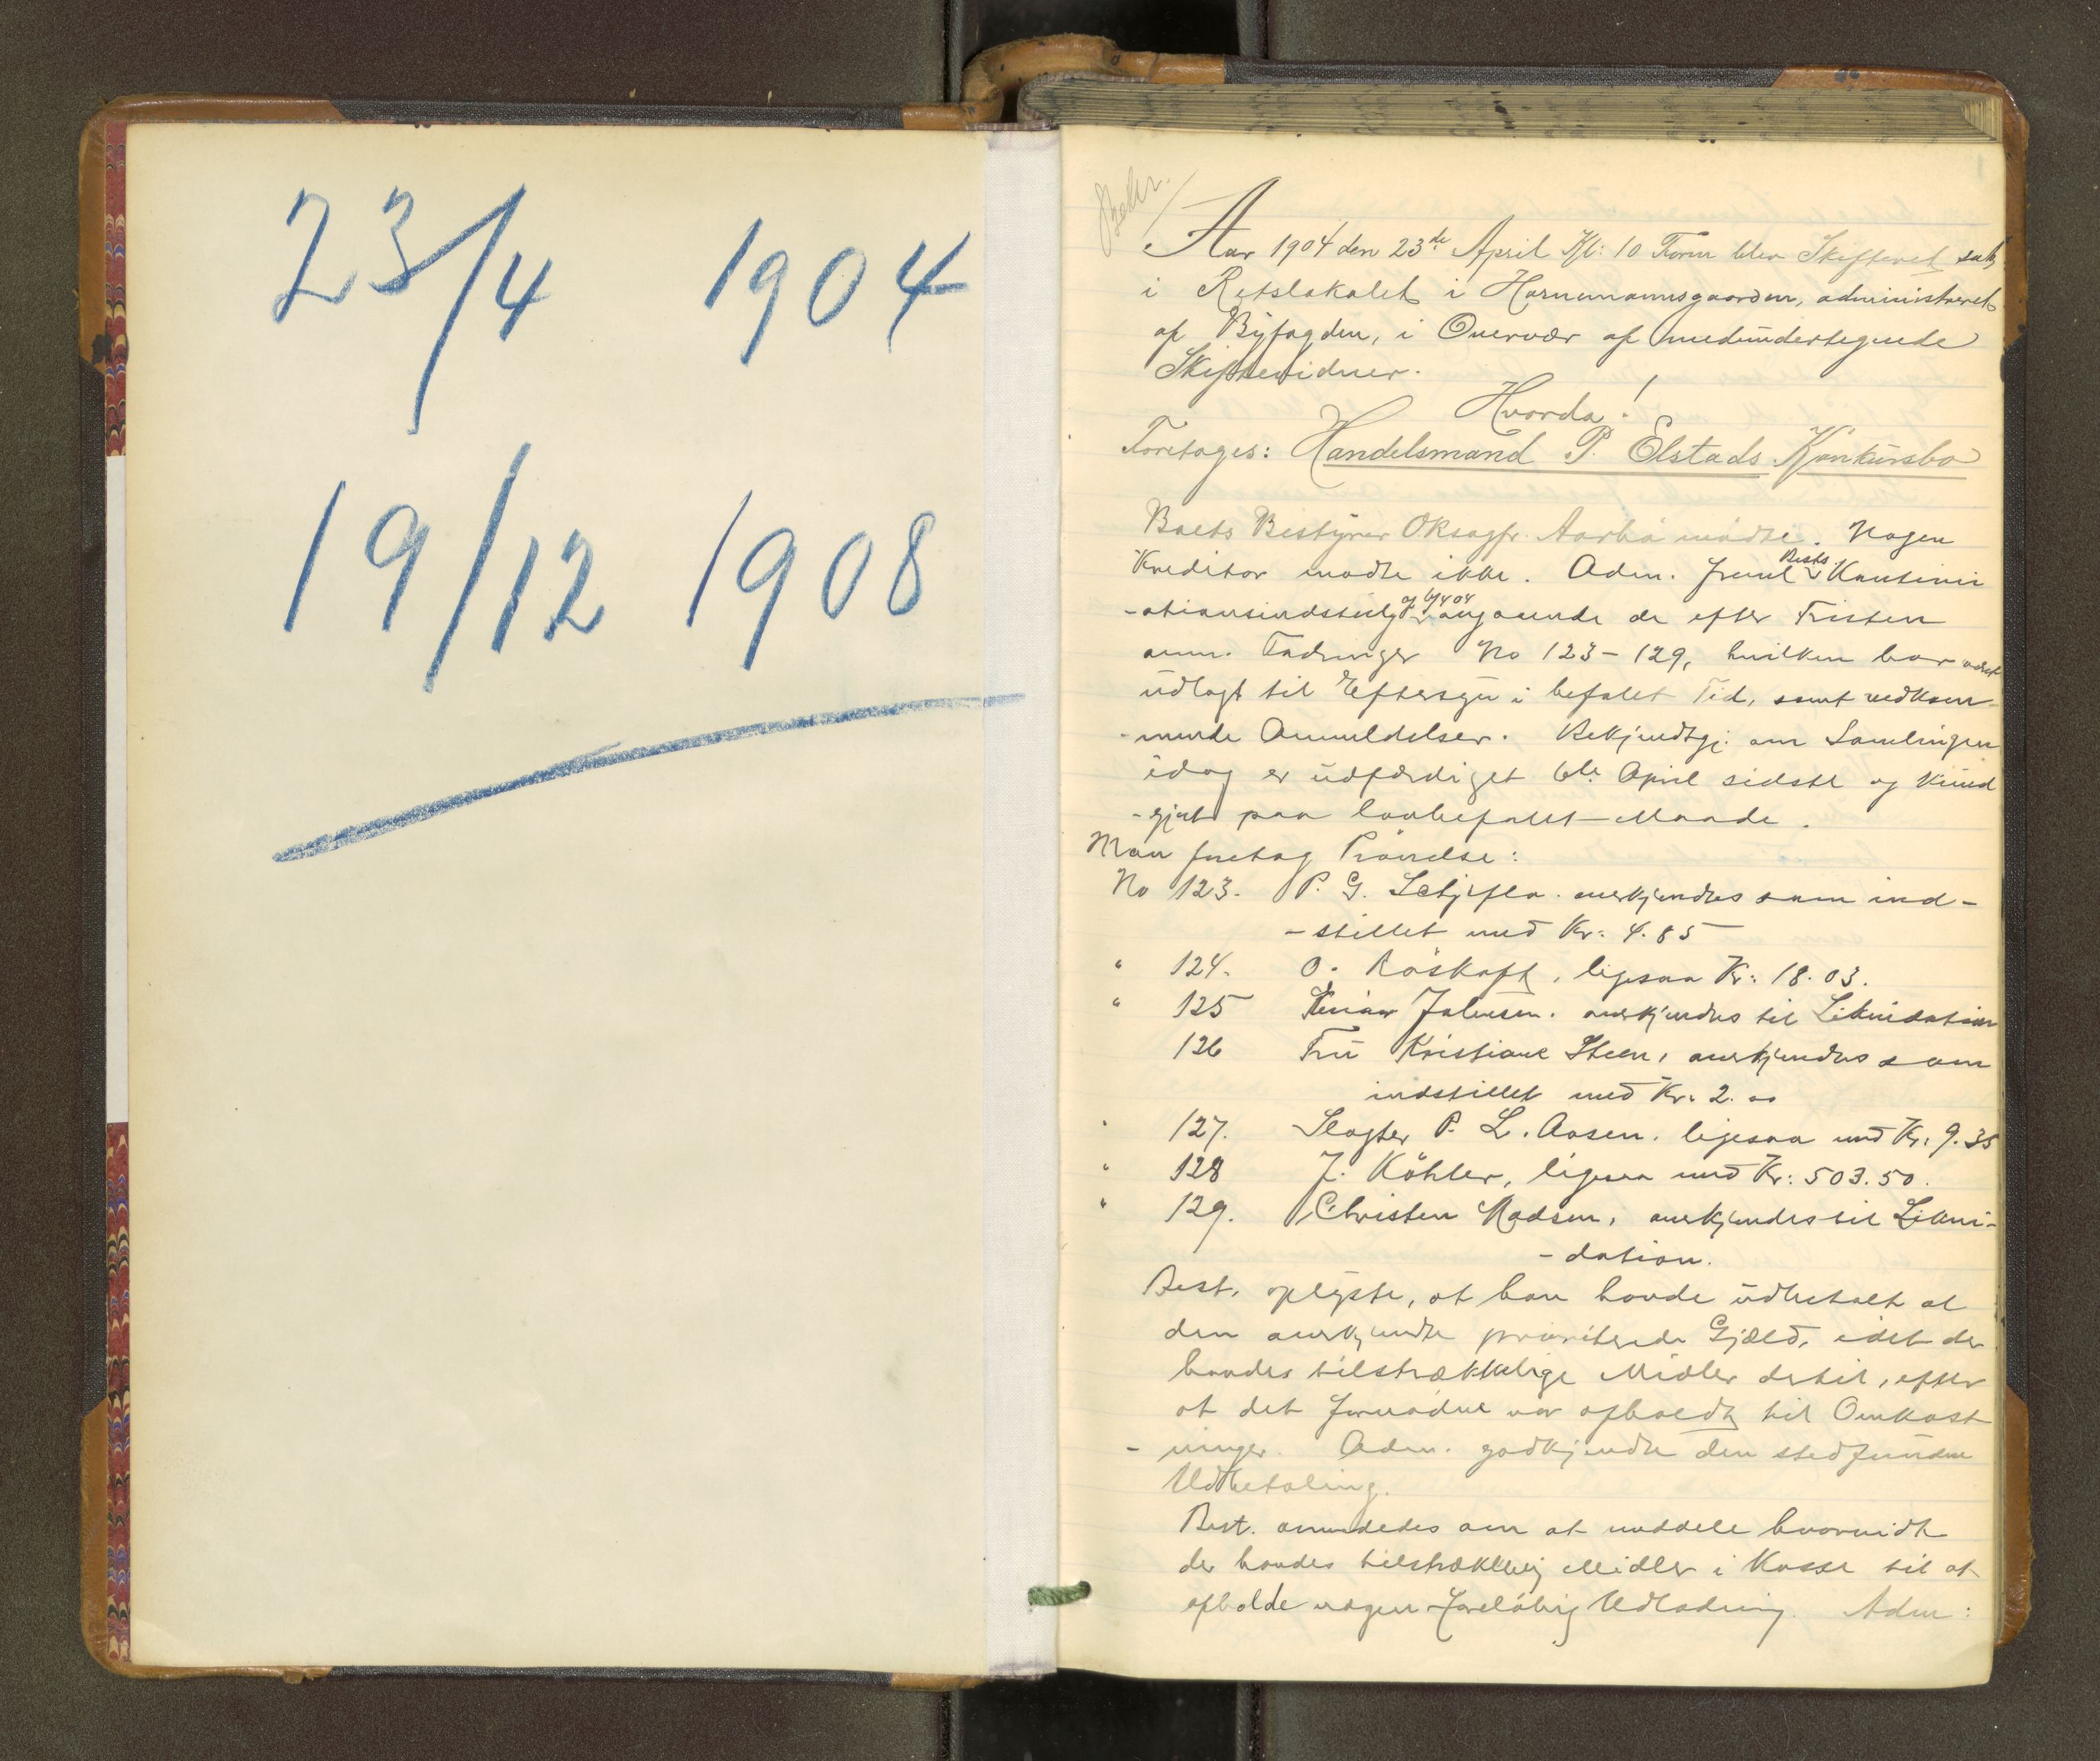 23/4 1904
19/12 1908
1
Bekr.
Aar 1904 den 23de April Kl: 10 Form blev Skifteret sat
i Retslokalet i Hornemannsgaarden, administreret
af Byfogden, i Overvær af medundertegnede
Skiftevidner.
Hvorda!
Foretages: Handelsmand P. Elstads Konkursbo
Boets Bestyrer ORsagfr. mødte. Nogen
Kreditor mødte ikke. Adm. freml Bests. Kontinu
-ationsindstillg af angaaende de efter Fristen
anm. Fordringer No 123-129, hvilken har været
udlagt til Eftersyn i befalet Tid, samt vedkom-
-mende Anmeldelser. Bekjendtgj. om Samlingen
idag er udfærdiget 6te April sidstl og kund
-gjort paa lovbefalet Maade.
Man foretog Prøvelse:
No 123. P. G. anerkjendtes som ind-
-stillet med Kr: 4.85
" 124. O. Röskaft, ligesaa Kr: 18.03.
" 125 anerkjendtes til Likvidation
126 Fru Kristiane Steen, anerkjendtes som
indstillet med Kr. 2.00
" 127. Slagter P. L. Aasen. ligesaa med Kr. 9.35
" 128 J. Köhler, ligesaa med Kr: 503.50.
" 129. Christen Madsen, anerkjendtes til Likvi-
-dation.
Best. oplyste, at han havde udbetalt al
den anerkjendte prioriterede Gjæld, idet der
havdes tilstrækkelige Midler dertil, efter
at det fornødne var afholdt til Omkost
-ninger. Adm. godkjendte den stedfundne
Udbetaling.
Best. anmodedes om at meddele hvorvidt
der havdes tilstrækkelig Midler i Kasse til at
afholde nogen foreløbig Udlodning. Adm: